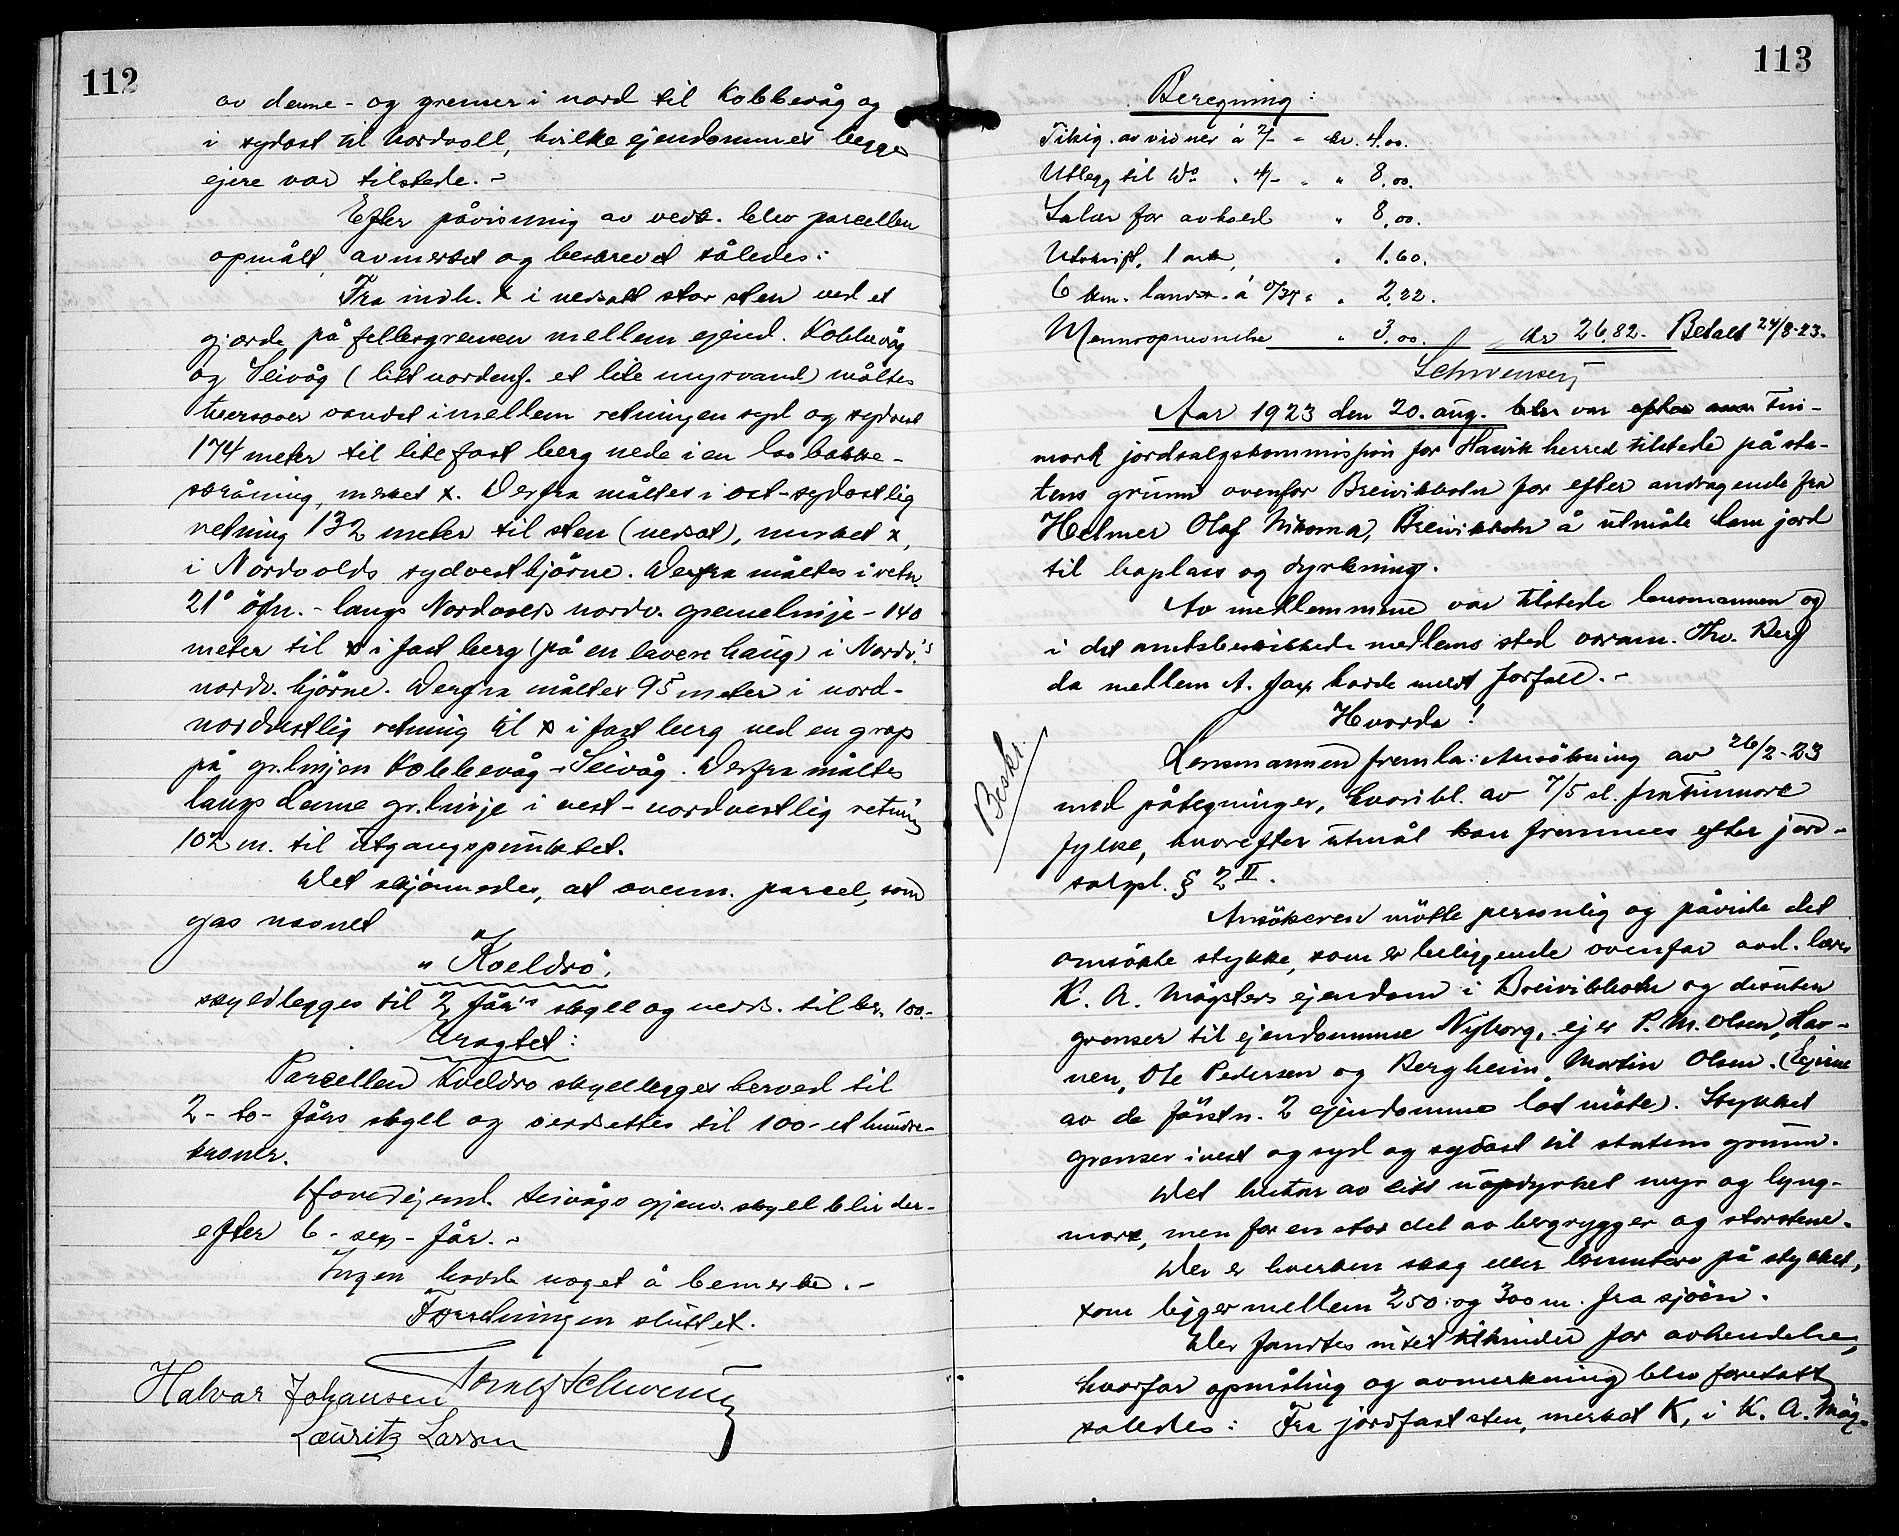 112
av denne - og grenser i nord til Kobbevåg og
i sydost til Nordvoll, hvilke ejendommes begges
ejere var tilstede. -
Efter påvisning av vedk. blev parcellen
opmålt, avmerket og beskrevet således:
Fra indh. x i nedsatt stor sten ved et
gjærde på fellesgrensen mellem ejend. Kobbevåg
og Seivåg (litt nordenf. et lite myrvand) måltes
tversover vandet i mellem retningen syd og sydvest
174 meter til lite fast berg nede i en lav bakke-
skråning, merket x. Derfra måltes i ost-sydostlig
retning 132 meter til sten (nedsat), merket x,
i Nordvolds sydvesthjörne. Derfra måltes i retn.
21° öfn. - langs Nordvolds nordv. grenselinje - 140
meter til x i fast berg (på en lavere haug) i Nordv.'s
nordv. hjörne. Derfra måltes 95 meter i nord-
nordvestlig retning til x i fast berg ved en grop
på gr.linjen Kobbevåg - Seivåg. Derfra måltes
langs denne gr.linje i vest-nordvestlig retning
102 m. til utgangspunktet.
Det skjönnedes, at ovenn. parcel, som
gas navnet
"Kveldro",
skyldlegges til 2 får's skyll og verds. til kr. 100.-
Uragtet:
Parcellen Kveldro skyldlegges herved til
2 - to - fårs skyll og verdsettes til 100 - et hundre-
kroner.
Hovedejend. Seivågs gjenv. skyll blir der-
efter 6 - sex - får. -
Ingen havde noget å bemerke. -
Forretningen sluttet.
Tornlf Schwensy
Halvar Johansen
Lauritz Larsen
113
Beregning:
Tilsig. av vidner á 2/- - kr. 4.00.
Utlegg til Do " 4/- " " 8.00.
Salær for avhold " 8.00.
Utskrift, 1 ark, " 1.60.
6 km. landsk. á 0/37 " " 2.22.
Mennsopnevnelse " 3.00. kr 26.82. Betalt 24/8-23.
Schwensy
Aar 1923 den 20. aug. var Fin-
mark jordsalgskommission for Hasvik herred tilstede på sta-
tens grunn ovenfor Breivikbotn for efter andragende fra
Helmer Olaf Nikoma, Breivikbotn å utmåle ham jord
til haplass og dyrkning.
Av medlemmene var tilstede lensmannen og
i det amtsbeskikkede medlems sted varam. Thv. Berg
da medlem A. Fax havde meldt forfall. -
Hvorda!
Beskr.
Lensmannen fremla: Ansökning av 26/2-23
med påtegninger, hvoribl. av 7/5 d. fra Finnmark
fylke, hvorefter utmål kan fremmes efter jord-
salgsl. § 2 II.
Ansökeren mötte personlig og påviste det
omsökte stykke, som er beliggende ovenfor avd. lærer
K. A. Mögsters ejendom i Breivikbotn og desuten
grenser til ejendommene Nyborg, ejer P. M. Olsen, Hav-
nen, Ole Pedersen og Bergheim, Martin Olsen. (Ejerne
av de förstn. 2 ejendomme lot möte). Stykket
grenser i vest og syd og sydost til statens grunn.
Det består av litt uopdyrket myr og lyng-
mark, men for en stor del av bergrygger og storstene.
Der er hverken skog eller törvmyr på stykket,
som ligger mellem 250 og 300 m. fra sjöen.
Der fandtes intet til hinder for avhendelse,
hvorfor opmåling og avmerkning blev foretatt
saledes: Fra jordfast sten, merket K, i K. A. Mög-